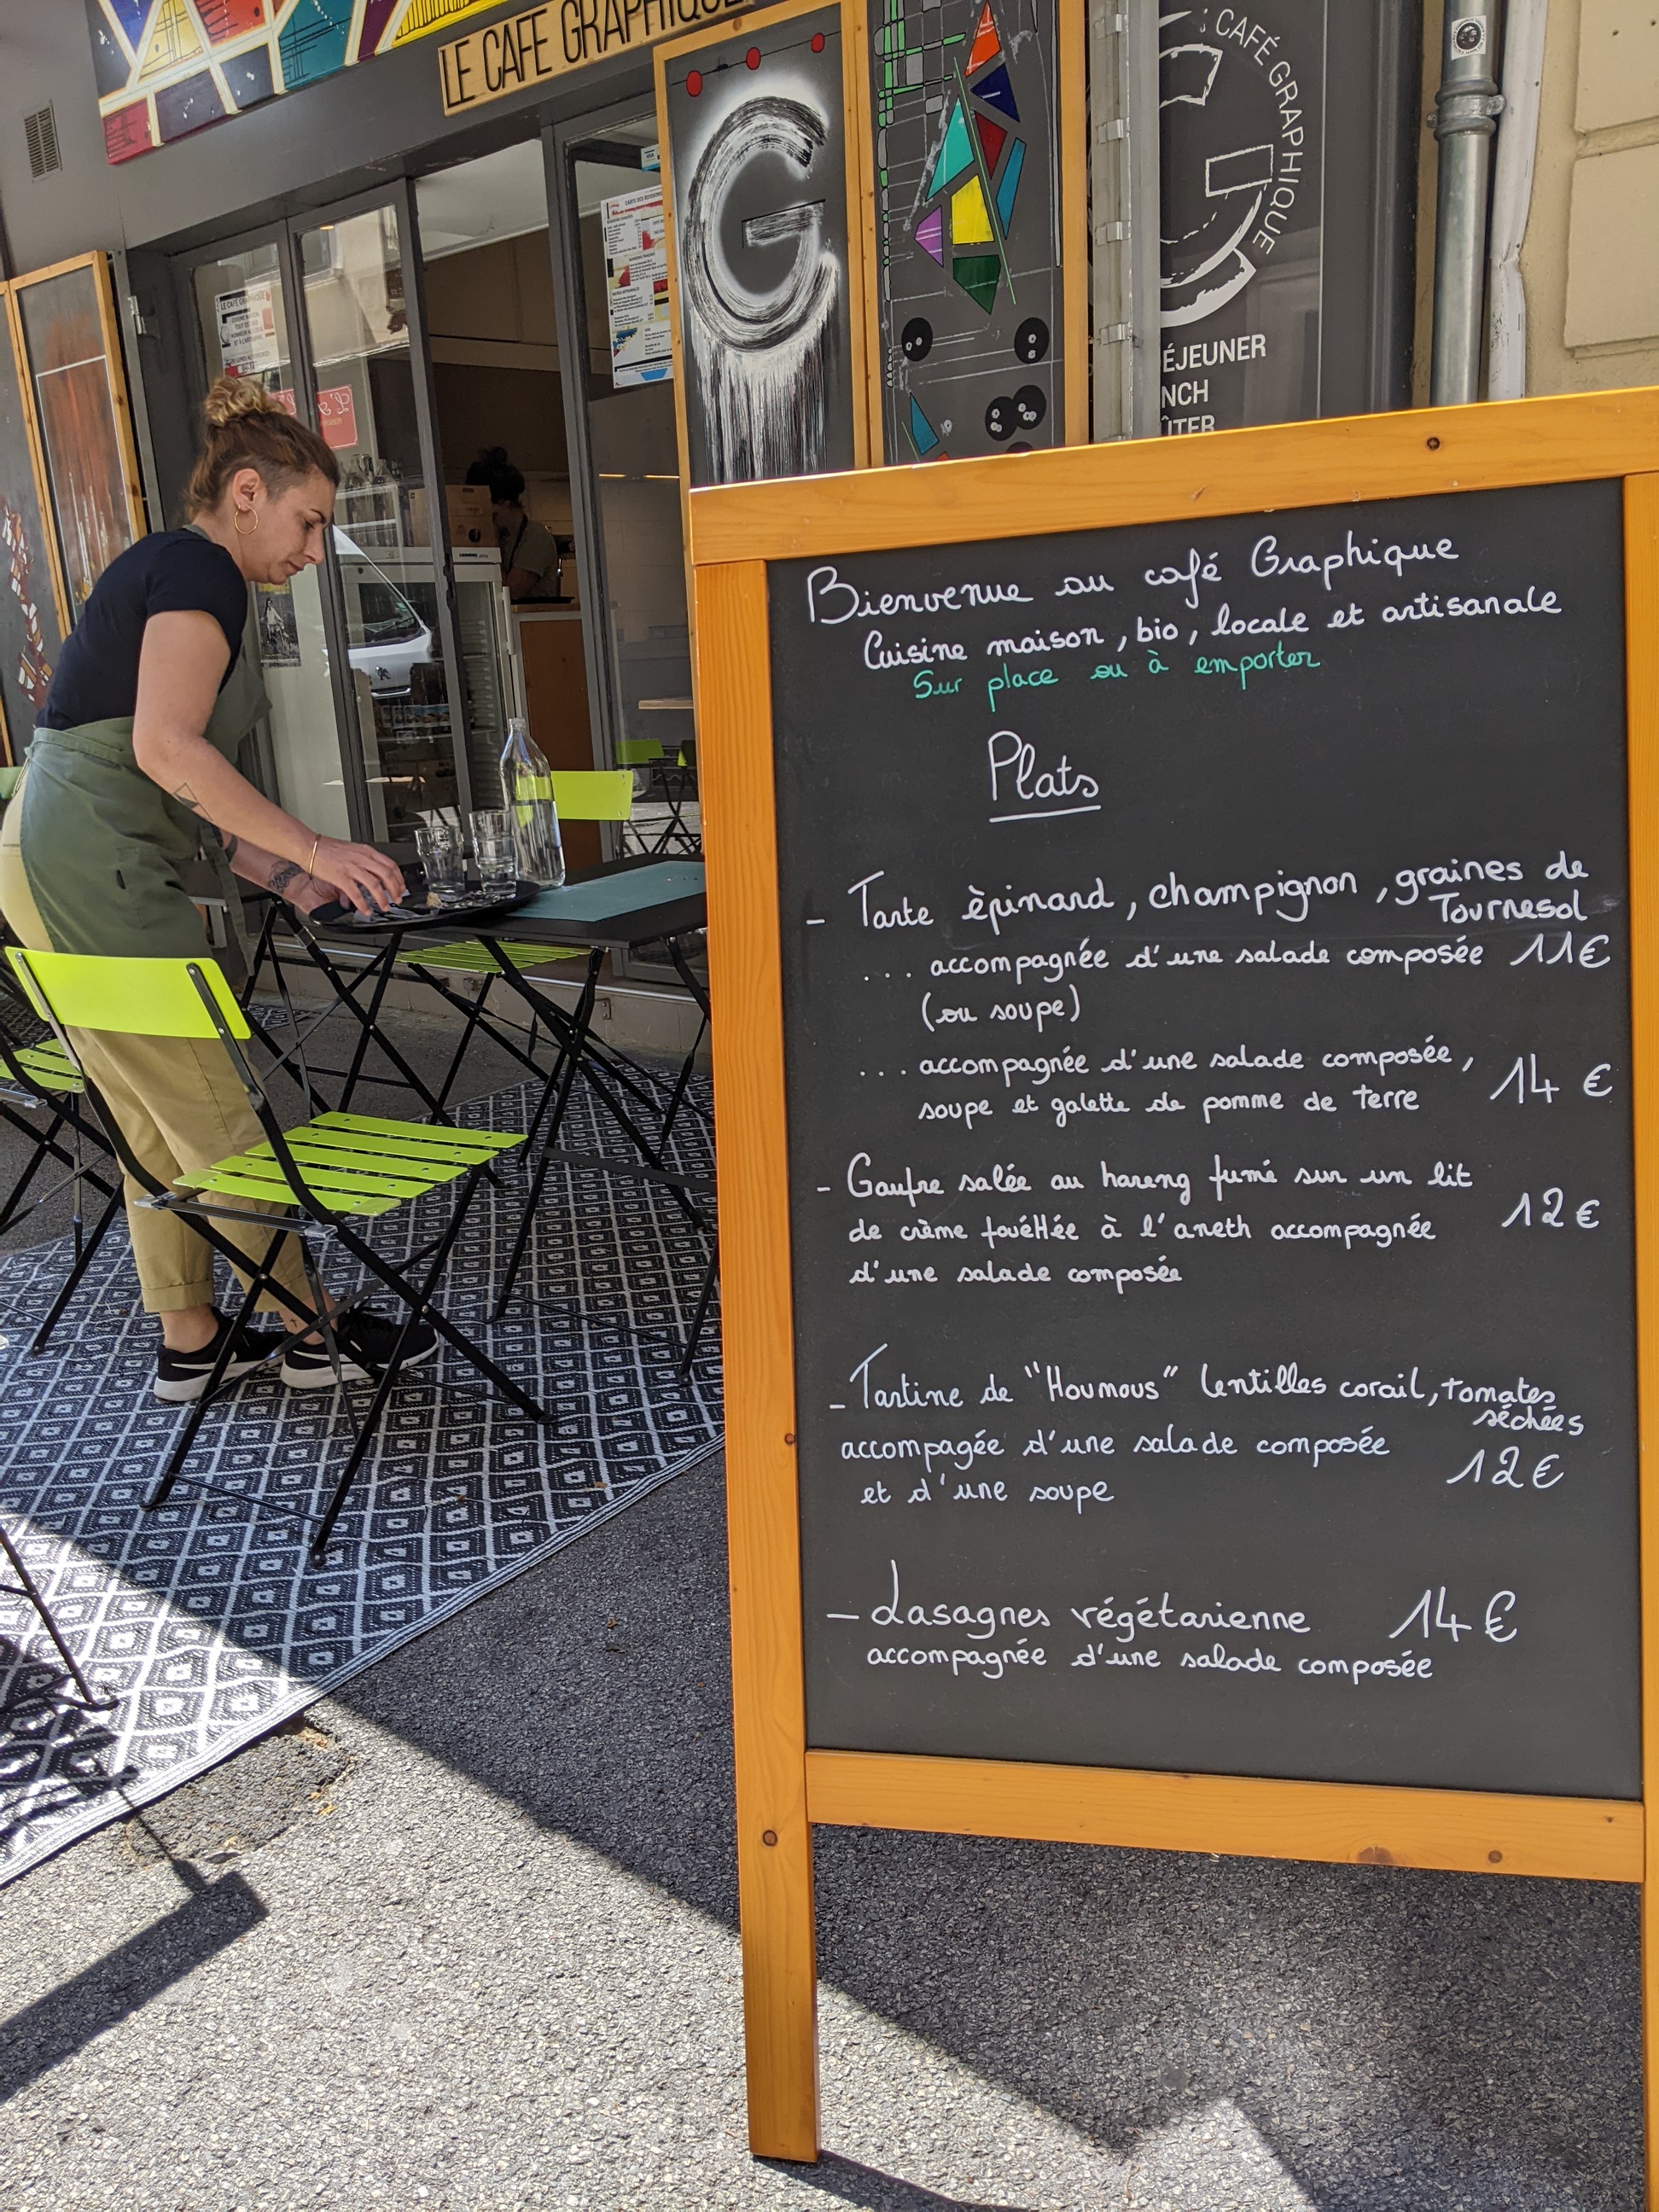 LE CAFE GRAPHIQUE
CAFÉ GRAPHIQUE
G
ÉJEUNER
NCH
ÛTER
CARTE DES BOISSONS
LE CAFÉ GRAPHIQUE
Bienvenue au café Graphique
Cuisine maison, bio, locale et artisanale
Sur place ou à emporter
Plats
- Tarte èpinard, champignon, graines de
Tournesol
... accompagnée d'une salade composée 11€
(ou soupe)
... accompagnée d'une salade composée,
soupe et galette de pomme de terre 14 €
- Gaufre salée au hareng fumé sur un lit
de crème fouéttée à l'aneth accompagnée 12€
d'une salade composée
- Tartine de "Houmous" lentilles corail, tomates
séchées
accompagée d'une salade composée 12€
et d'une soupe
- Lasagnes végétarienne 14€
accompagnée d'une salade composée